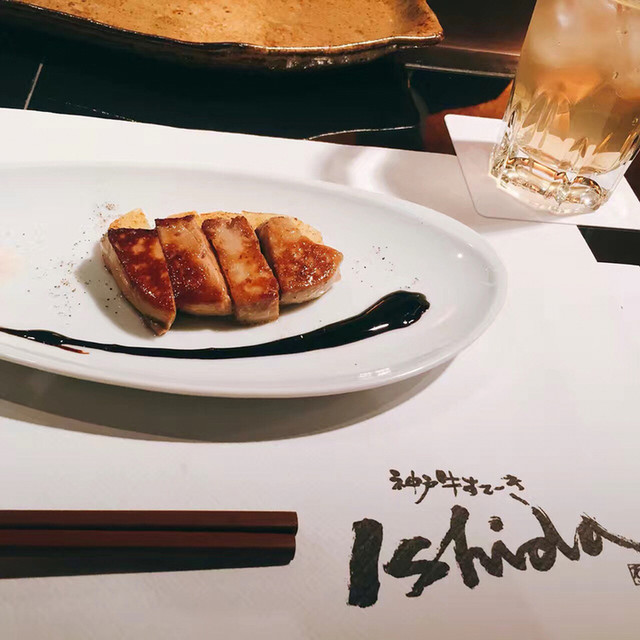 神戸牛すてーき
Ishida